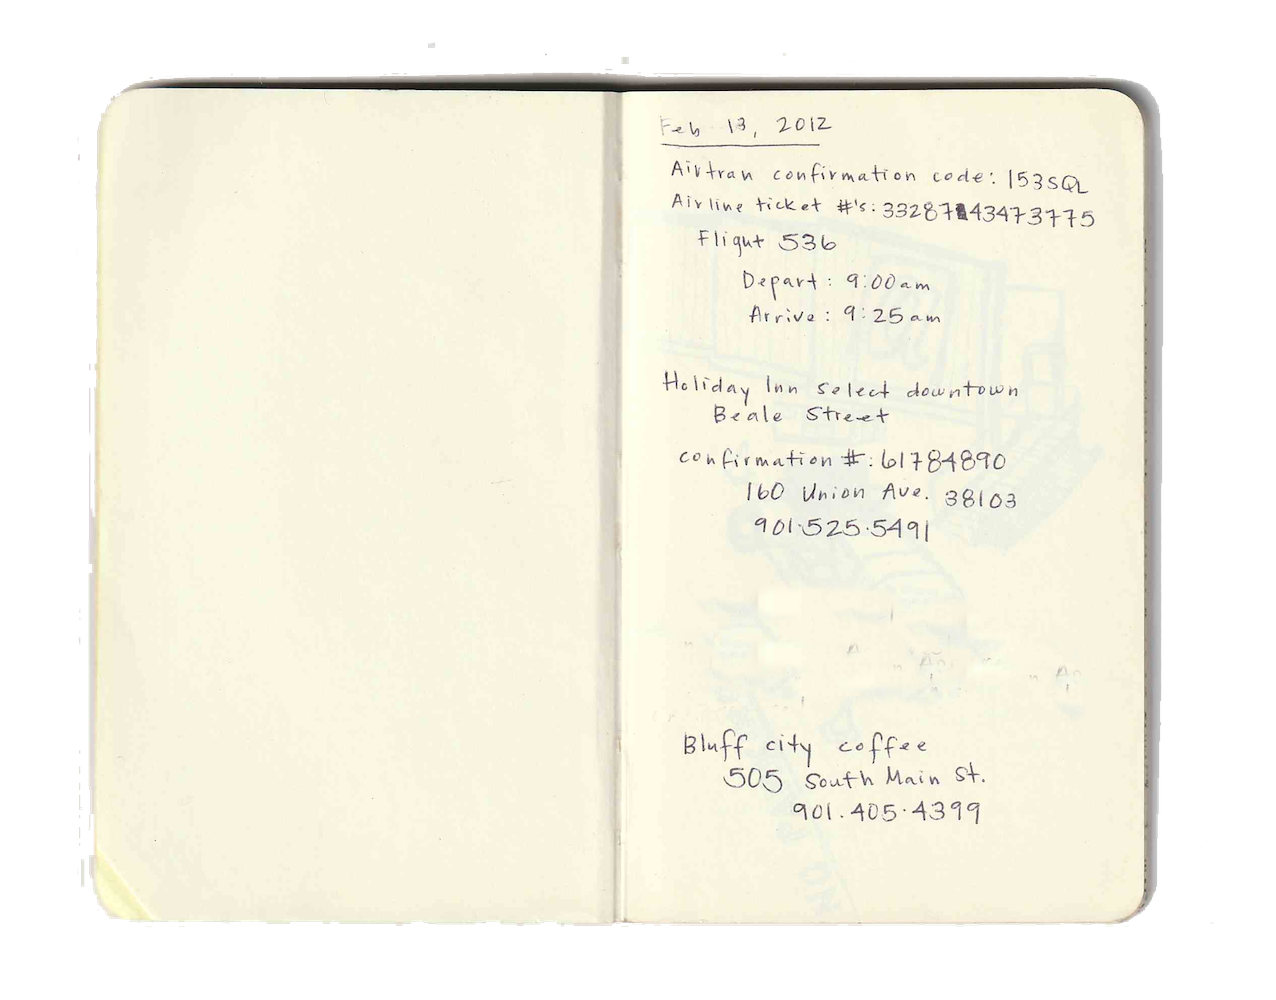 Feb 13, 2012
Airtran confirmation code: 153SQL
Airline ticket #'s: 3328743473775
Flight 536
Depart: 9:00am
Arrive: 9:25am
Holiday Inn select downtown
Beale Street
confirmation #: 61784890
160 Union Ave. 38103
901.525.5491
Bluff city coffee
505 South Main St.
901.405.4399